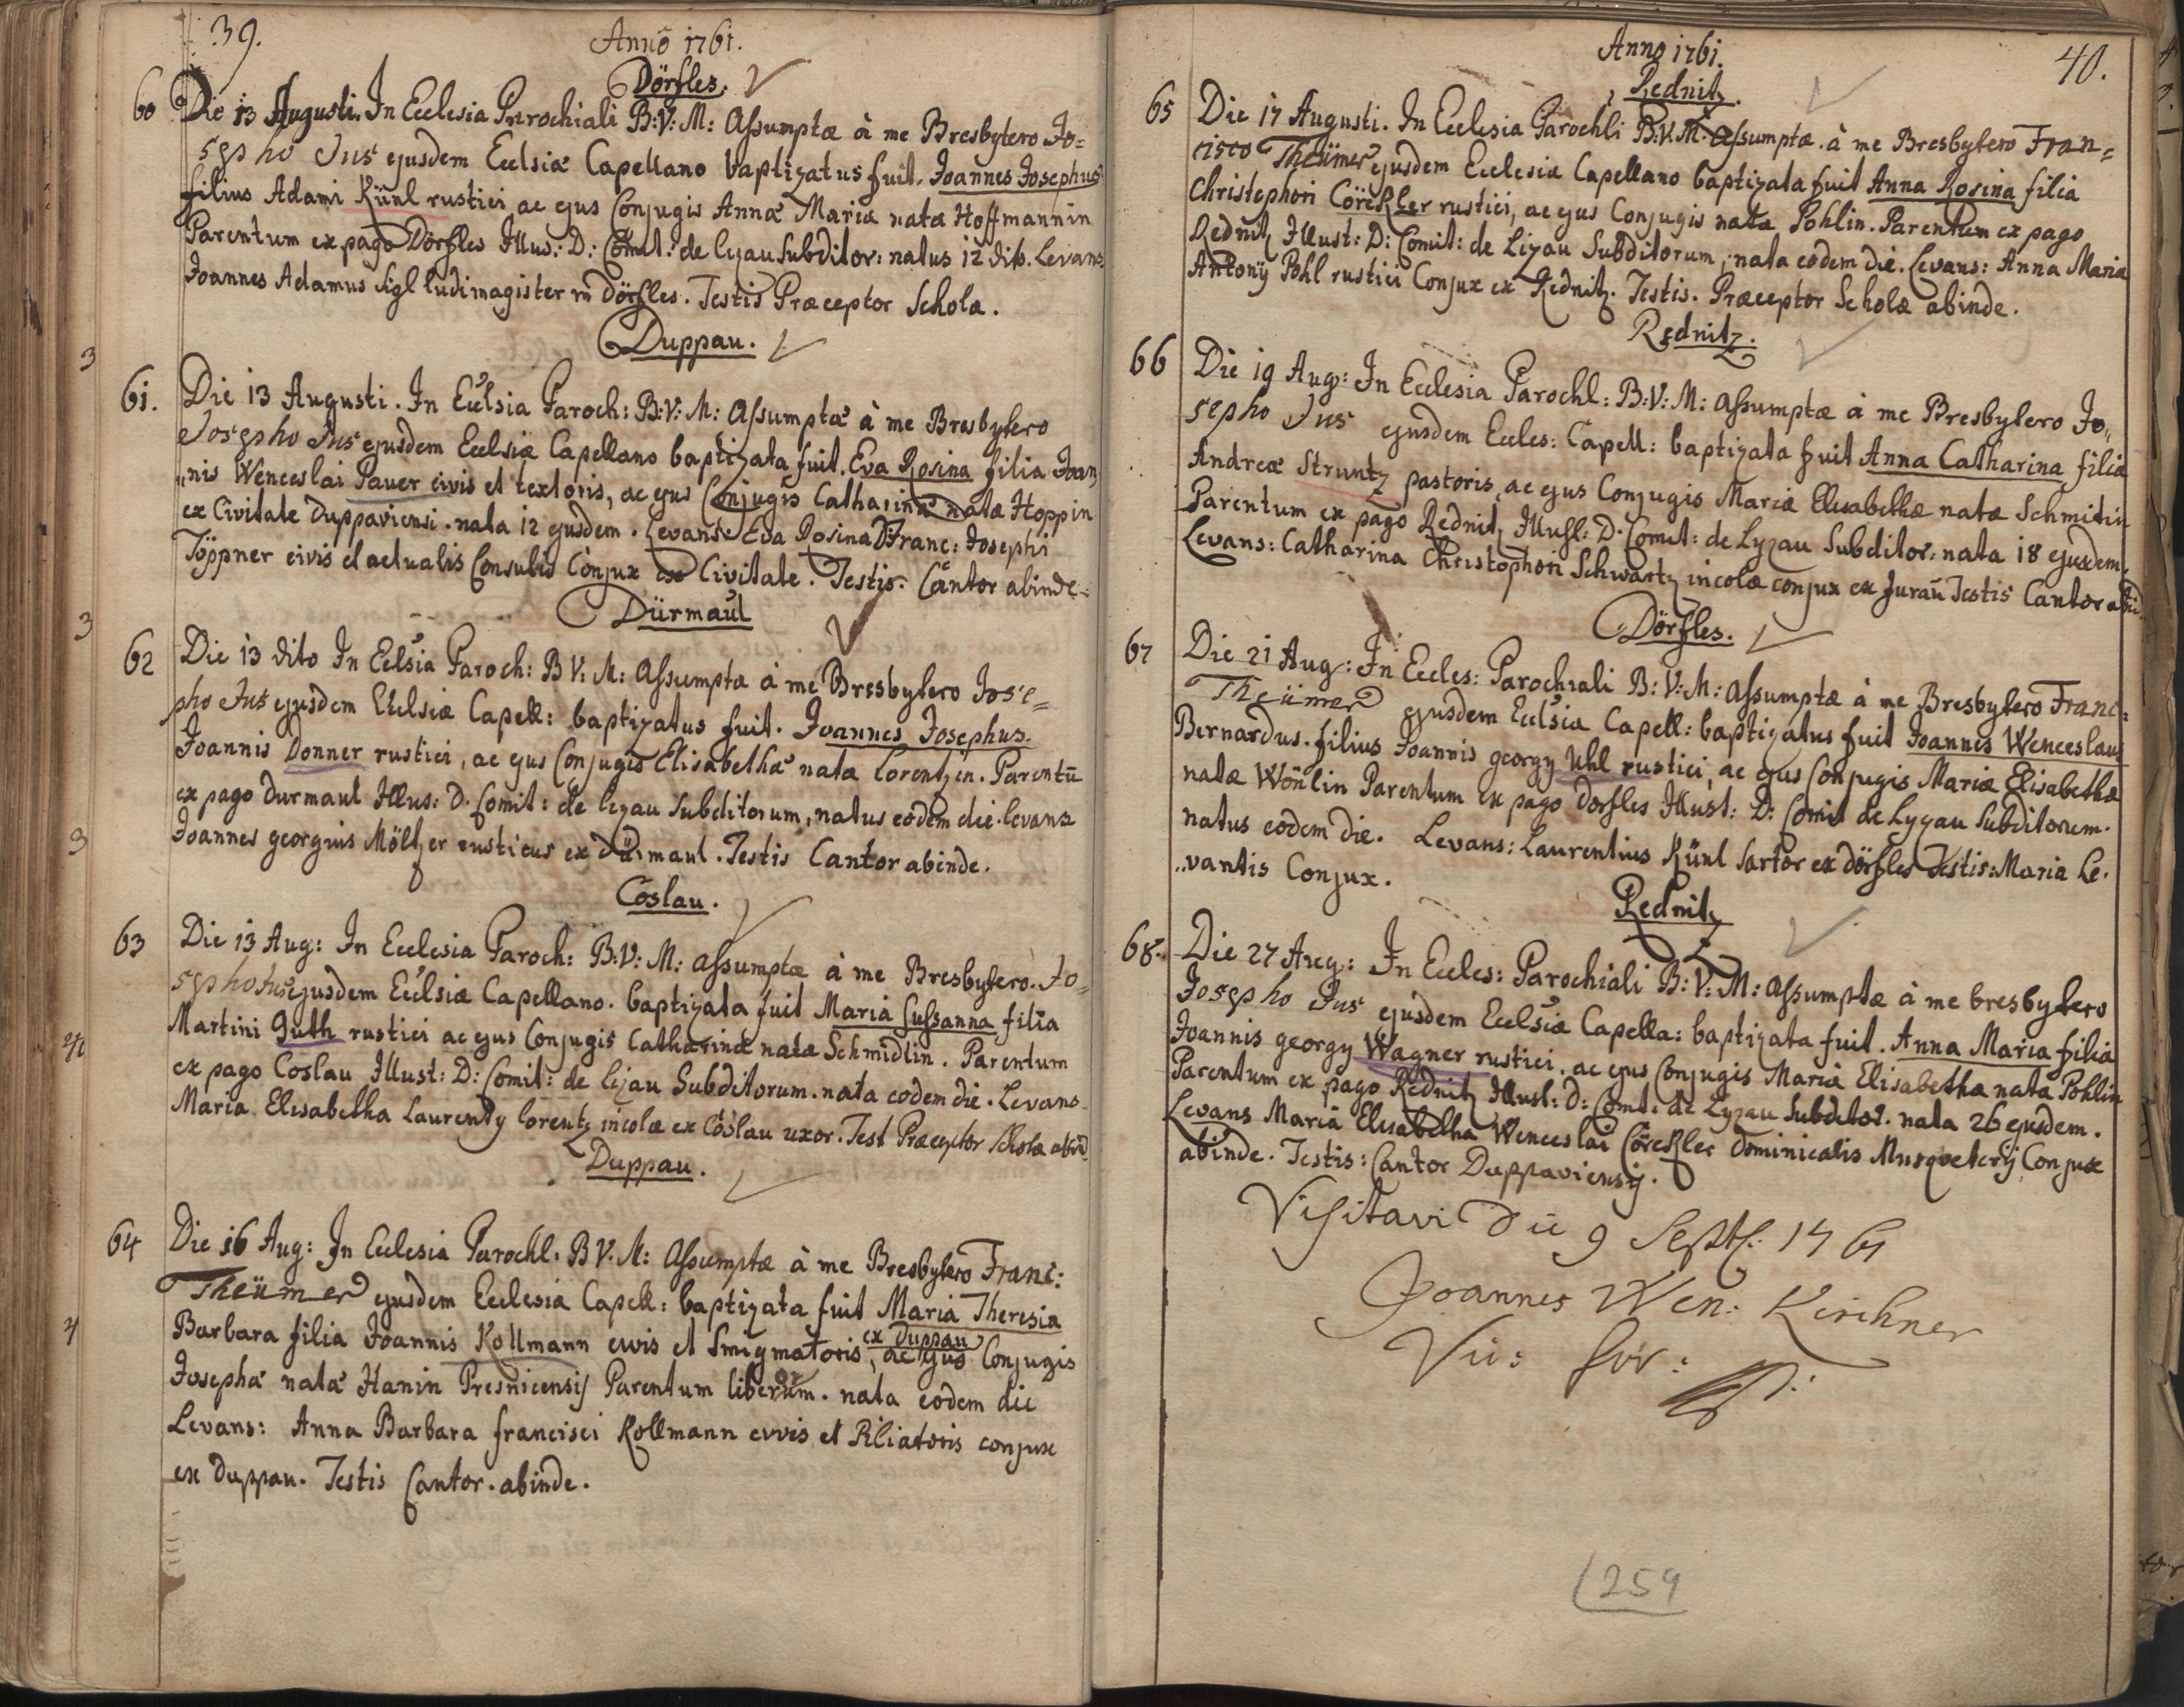 39.
Anno 1761.
Dörfles.
60 Die 13 Augusti. In Ecclesia Parochiali B:V:M: Assumptæ à me Bresbytero Jo=
sepho Jus ejusdem Ecelsiæ Capellano baptizatus fuit. Joannes Josephus
filius Adami Künl rustici ac ejus Conjugis Annæ Mariæ natæ Hoffmannin
Parentum ex pago Dörfles Illus: D: Comit: de Lyzau Subditor: natus 12 dito. Levans
Joannes Adamus Sigl ludimagister in Dörfles. Testis Præceptor Scholæ.
Duppau.
3
61. Die 13 Augusti. In Ecelsia Paroch: B:V:M: Assumptæ à me Bresbytero
Josepho Jus ejusdem Ecelsiæ Capellano baptizata fuit. Eva Rosina filia Joan„
„nis Wenceslai Paver civis et textoris, ac ejus Conjugis Catharinæ natæ Hoppin
ex Civitate Duppaviensi. nata 12 ejusdem. Levans Eva Rosina Franc: Josephi
Töppner civis et actualis Consulis Conjux ex Civitate. Testis: Cantor abinde.
Dürmaul
3
62 Die 13 dito In Eelsia Paroch: B V: M: Assumptæ à me Bresbytero Jose=
pho Jus ejusdem Ecelsiæ Capell: baptizatus fuit. Joannes Josephus.
Joannis Donner rustici, ac ejus Conjugis Elisabethæ natæ Lorentzin. Parentū
ex pago Durmaul Illus: D. Comit: de Lyzau Subditorum, natus eodem die. Levans
3
Joannes georgius Möltzer rusticus ex Dürmaul. Testis Cantor abinde.
Coslau.
63 Die 13 Aug: In Ecclesia Paroch: B:V:M: Assumptæ à me Bresbytero. Jo=
sepho Jus ejusdem Ecelsiæ Capellano. baptizata fuit Maria Sussanna filia
Martini Guth rustici ac ejus Conjugis Catharinæ natæ Schmidtin. Parentum
ex pago Coslau Illust: D: Comit: de Lyzau Subditorum. nata eodem die. Levans
Maria Elisabetha Laurenty Lorentz incolæ ex Coslau uxor. Test Præceptor Scholæ abind
Duppau.
64 Die 16 Aug: In Ecclesia Parochl: B V. M: Assumptæ à me Bresbytero Franc:
Theümer ejusdem Ecclesiæ Capell: baptizata fuit Maria Theresia
Barbara filia Joannis Kollmann civis et Smigmatoris ex Duppau, ac ejus Conjugis
Josephæ natæ Hanin Presnicensis Parentum liberorum. nata eodem die
Levans: Anna Barbara francisci Kollmann civis et Piliatoris conjux
ex Duppau. Testis Cantor. abinde.
40.
Anno 1761.
Rednitz.
65 Die 17 Augusti. In Ecclesia Parochli B:V:M: Assumptæ. à me Bresbytero Fran=
cisco Theümer ejusdem Ecclesiæ Capellano baptizata fuit Anna Rosina filia
Christophori Cöreckler rustici, ac ejus Conjugis natæ Pohlin. Parentum ex pago
Rednitz Illust: D: Comit: de Lizau Subditorum, nata eodem die. Levans: Anna Maria
Antonÿ Pohl rustici Conjux ex Rednitz. Testis. Præceptor Scholæ abinde.
Rednitz.
66 Die 19 Aug: In Ecclesia Parochl: B:V:M: Assumptæ à me Bresbytero Jo„
sepho Jus ejusdem Eccles: Capell: baptizata fuit Anna Catharina filia
Andreæ Struntz pastoris, ac ejus Conjugis Mariæ Elisabethæ natæ Schmitin
Parentum ex pago Rednitz Illust: D. Comit: de Lyzau Subditor: nata 18 ejusdem.
Levans: Catharina Christophori Schwartz incolæ conjux ex Jurau Testis Cantor abin
Dörfles.
67 Die 21 Aug: In Eccles: Parochiali B:V:M: Assumptæ à me Bresbytero Franc:
Theümer ejusdem Ecelsiæ Capell: baptizatus fuit Joannes Wenceslaus
Bernardus. filius Joannis georgy Uhl rustici, ac ejus Conjugis Mariæ Elisabethæ
natæ Wönlin Parentum ex pago Dorfles Illust: D: Comit de Lyzau Subditorum.
natus eodem die. Levans: Laurentius Künl Sartor ex Dörfles Testis: Maria Le.
„vantis Conjux.
Rednitz
68. Die 27 Aug: In Eccles: Parochiali B:V:M: Assumptæ à me bresbytero
Josepho Jus ejusdem Ecelsiæ Capella: baptizata fuit. Anna Maria filia
Joannis georgy Wagner rustici. ac ejus Conjugis Mariæ Elisabetha nata Pohlin
Parentum ex pago Rednitz Illust: D: Comt: de Lyzau Subditor. nata 26 ejusdem.
Levans Maria Elisabetha Wenceslai Cöreckler Dominicalis Musqveterÿ Conjux
abinde. Testis: Cantor Duppaviensis.
Visitavi die 9 Septb: 1761
Joannes Wen: Kirchner
Vic: for:
259